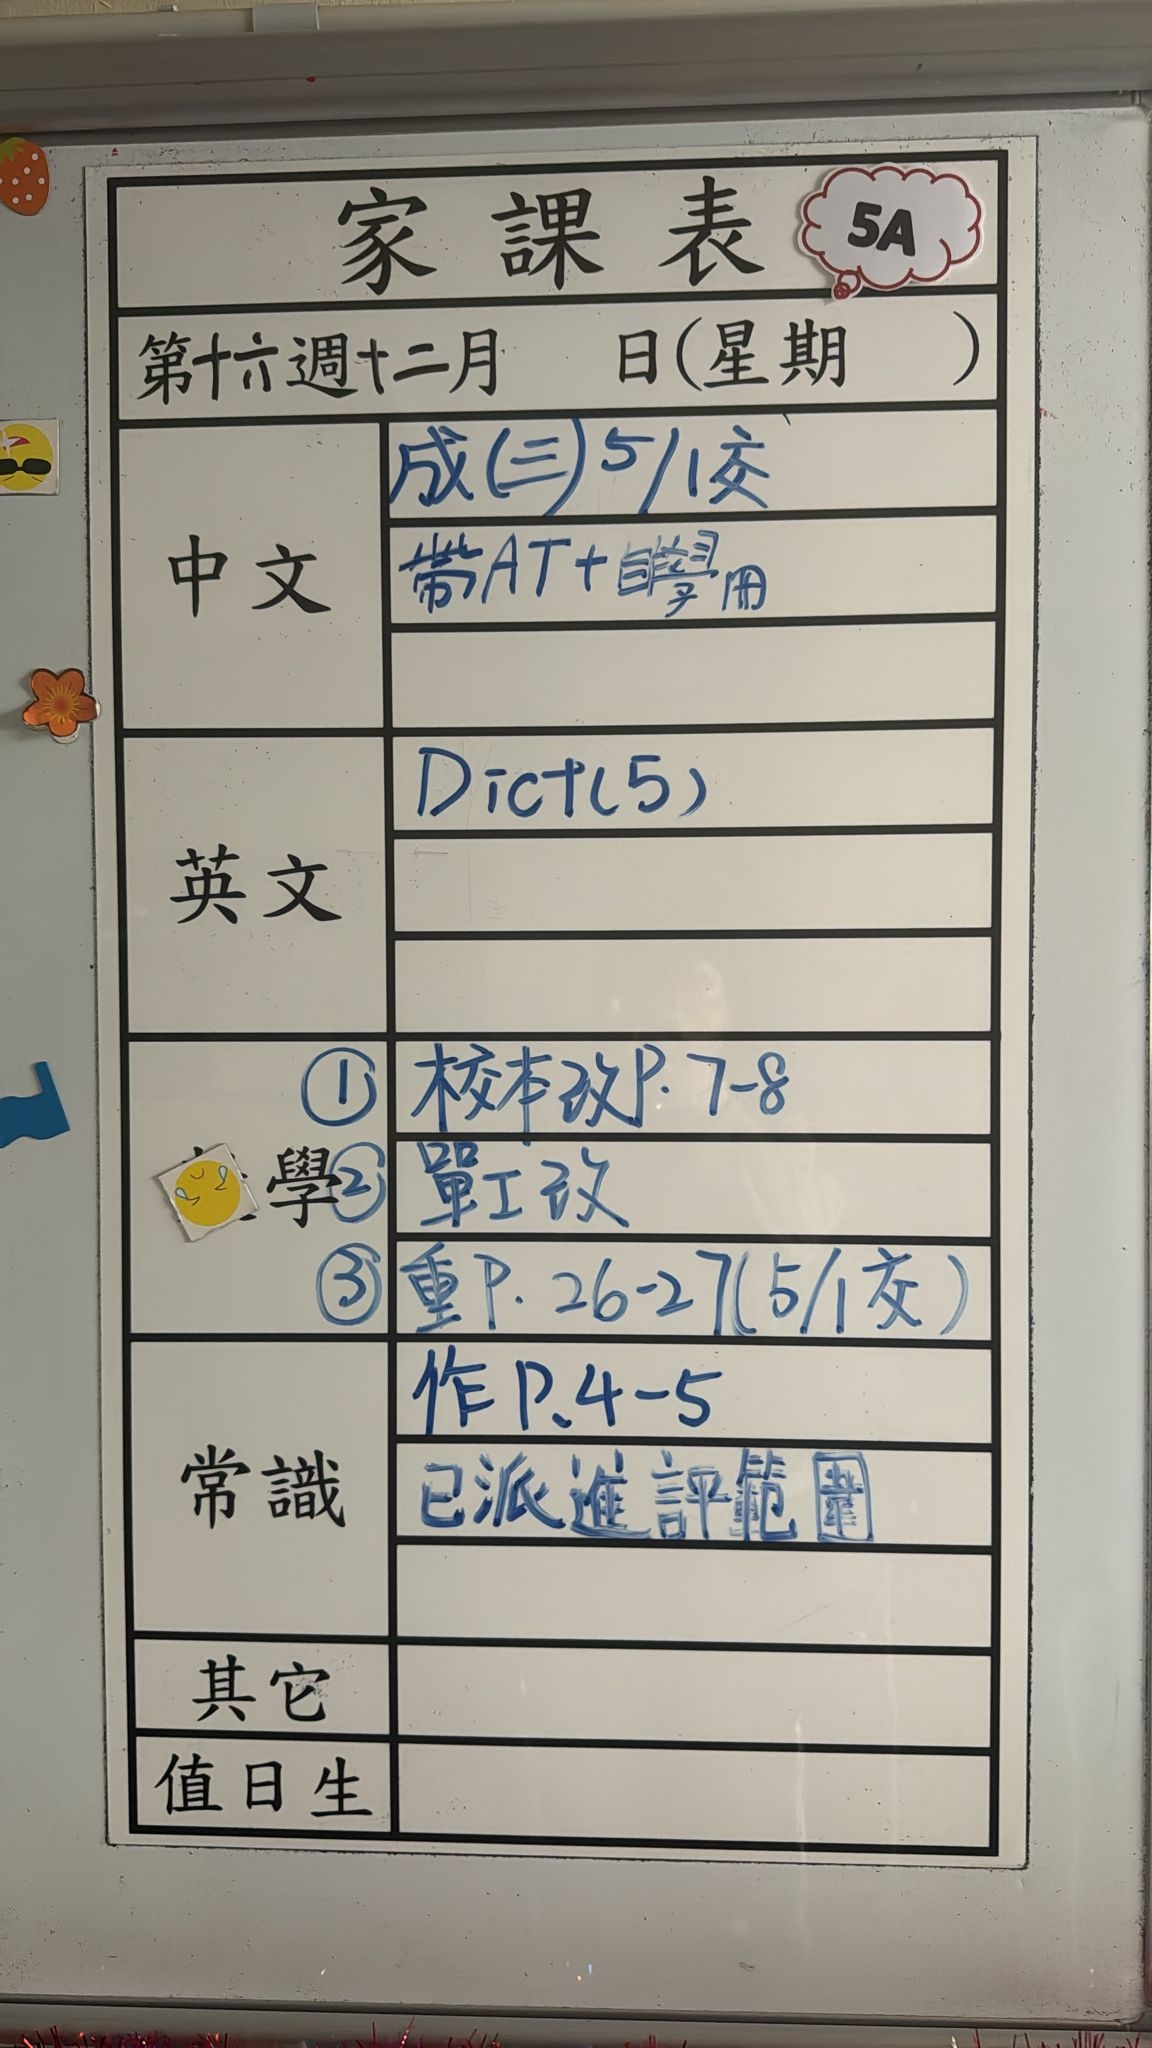 家課表 5A
第十六週十二月 日(星期 )
中文
成(三) 5/1交
帶AT+自學冊
英文
Dict(5)
學
① 校本改P. 7-8
② 單工改
③ 重P. 26-27(5/1交)
常識
作P.4-5
已派進評範圍
其它
值日生